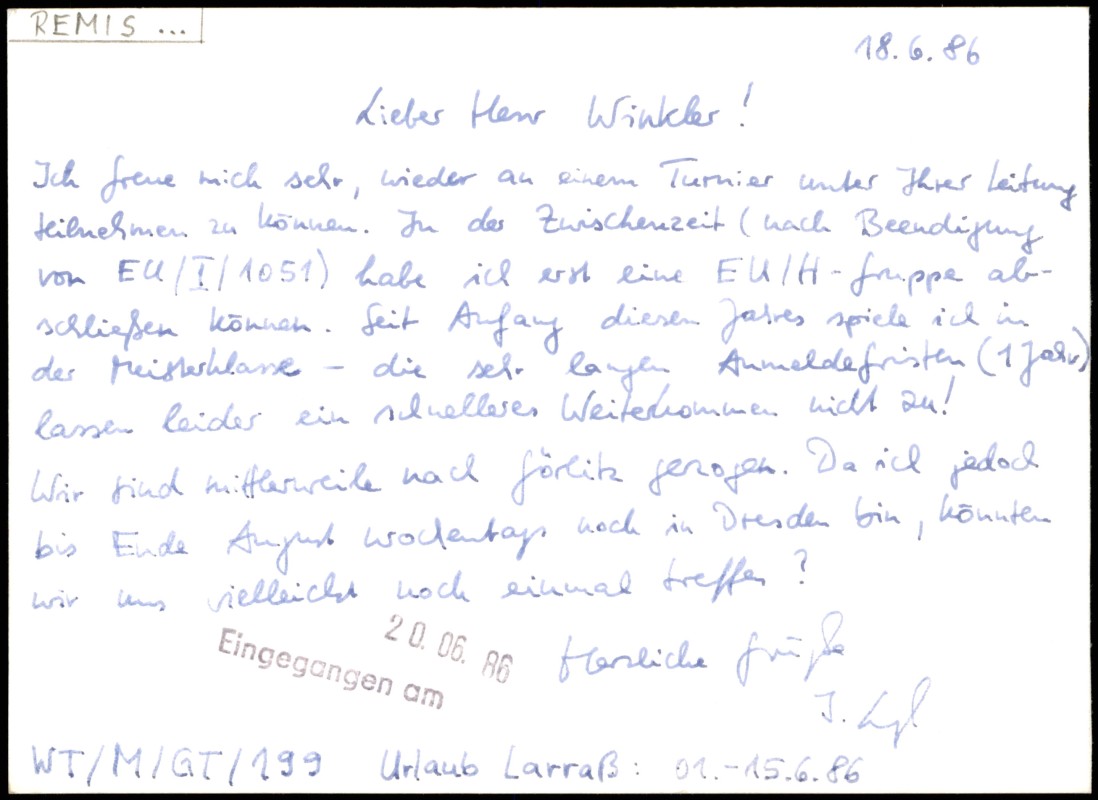 REMIS ...
18.6.86
Lieber Herr Winkler!
Ich freue mich sehr, wieder an einem Turnier unter Ihrer Leitung
teilnehmen zu können. In der Zwischenzeit (nach Beendigung
von EU/I/1051) habe ich erst eine EU/H-Gruppe ab-
schließen können. Seit Anfang diesen Jahres spiele ich in
der Meisterklasse – die sehr langen Anmeldefristen (1 Jahr)
lassen leider ein schnelleres Weiterkommen nicht zu!
Wir sind mittlerweile nach Görlitz gezogen. Da ich jedoch
bis Ende August wochentags noch in Dresden bin, könnten
wir uns vielleicht noch einmal treffen?
20.06.86
Eingegangen am
Herzliche Grüße
J.
WT/M/GT/199 Urlaub Larraß: 01.-15.6.86